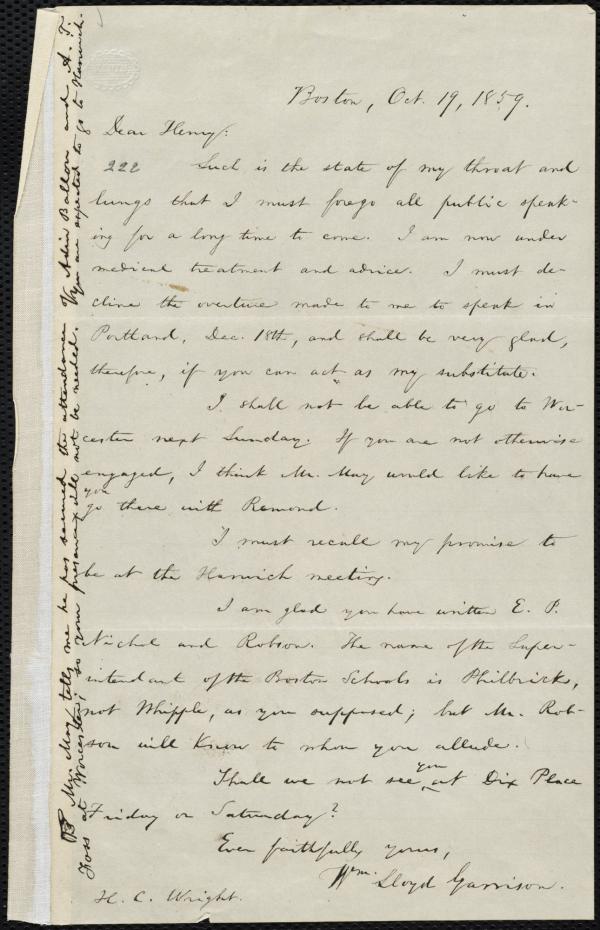 Boston, Oct. 19, 1859.
Dear Henry:
222 Such is the state of my throat and
lungs that I must forego all public speak-
ing for a long time to come. I am now under
medical treatment and advice. I must de-
cline the overture made to me to speak in
Portland, Dec. 18th, and shall be very glad,
therefore, if you can act as my substitute.
I shall not be able to go to Wor-
cester next Sunday. If you are not otherwise
engaged, I think Mr. May would like to have
you
go there with Remond.
I must recall my promise to
be at the Harwich meeting.
I am glad you have written E. P.
Nichol and Robson. The name of the Super-
intendant of the Boston Schools is Philbrick,
not Whipple, as you supposed; but Mr. Rob-
son will know to whom you allude.
Shall we not see you at Dix Place
Friday or Saturday?
Ever faithfully yours,
Wm. Lloyd Garrison.
H. C. Wright.
Mr. May tells me he has secured the attendance of Adin Ballou and A. T.
Foss at Worcester; so your presence will not be needed. You are expected to go to Harwich.